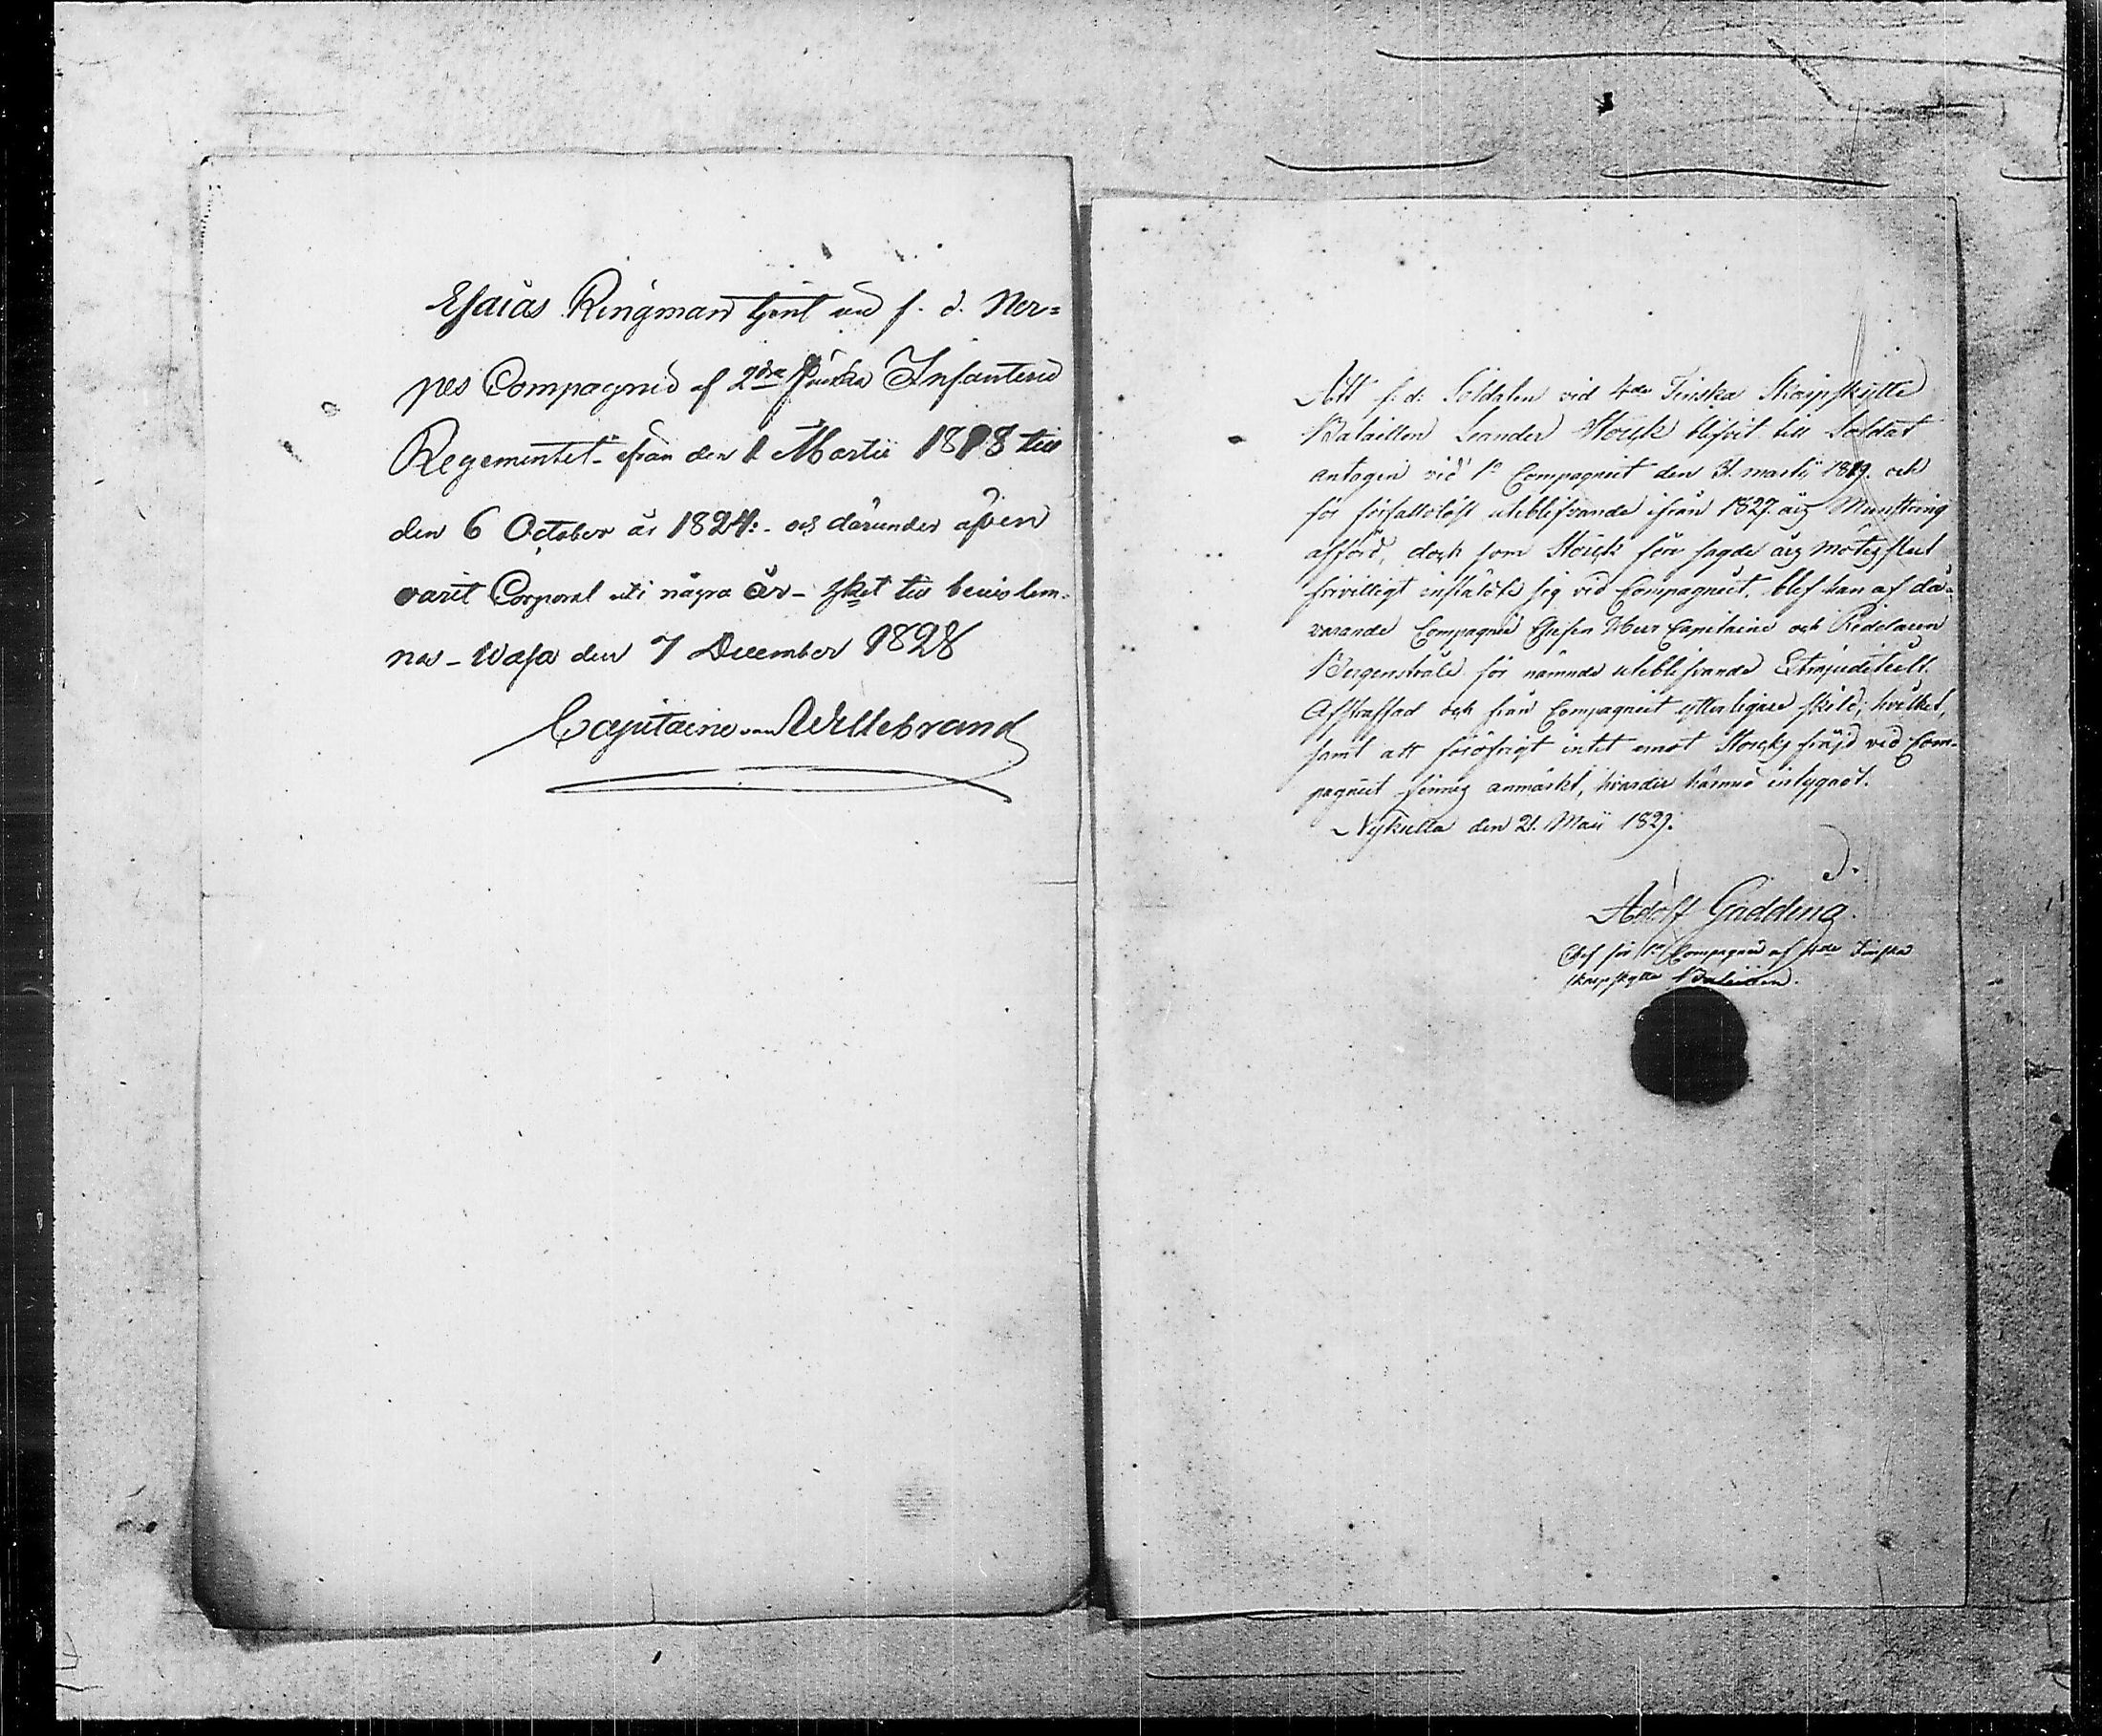 Esaias Ringman tjent vid f. d. Ner=
pes Compagnie af 2dra Finska Infanterie
Regementet ifrån den 1 Martii 1818 till
den 6 October år 1824: och därunder äfven
varit Corporal uti några år - sket till bevis lem-
nas - Wasa den 7 December 1828
Capitaine von Willebrand
Att f: d: Soldaten vid 4de Finska Skarpskytte
Bataillon Leander Storck blifvit till Soldat
antagen vid 1a Compagniet den 31. martii 1819. och
för förfallolöst uteblifvande ifrån 1827. års Mönstring
afförd, dock som Storck före sagde års mötes slut
frivilligt inställdte sig vid Compagniet, blef han af då=
varande Compagnie Chefen Herr Capitaine och Riddaren
Bergenstråle för nämnde uteblifvande Extrajudicielt
Afstraffad och från Compagniet ytterligare skild; hvilket,
samt att föröfrigt intet emot Storcks fräjd vid Com-
pagniet finnes anmärkt, hvarder härmed intygadt.
Nykulla den 21. Maii 1829.
Adolf Gadding.
Chef för 1a Compagnie af 4de Finska
Skarpskytte Bataillon.